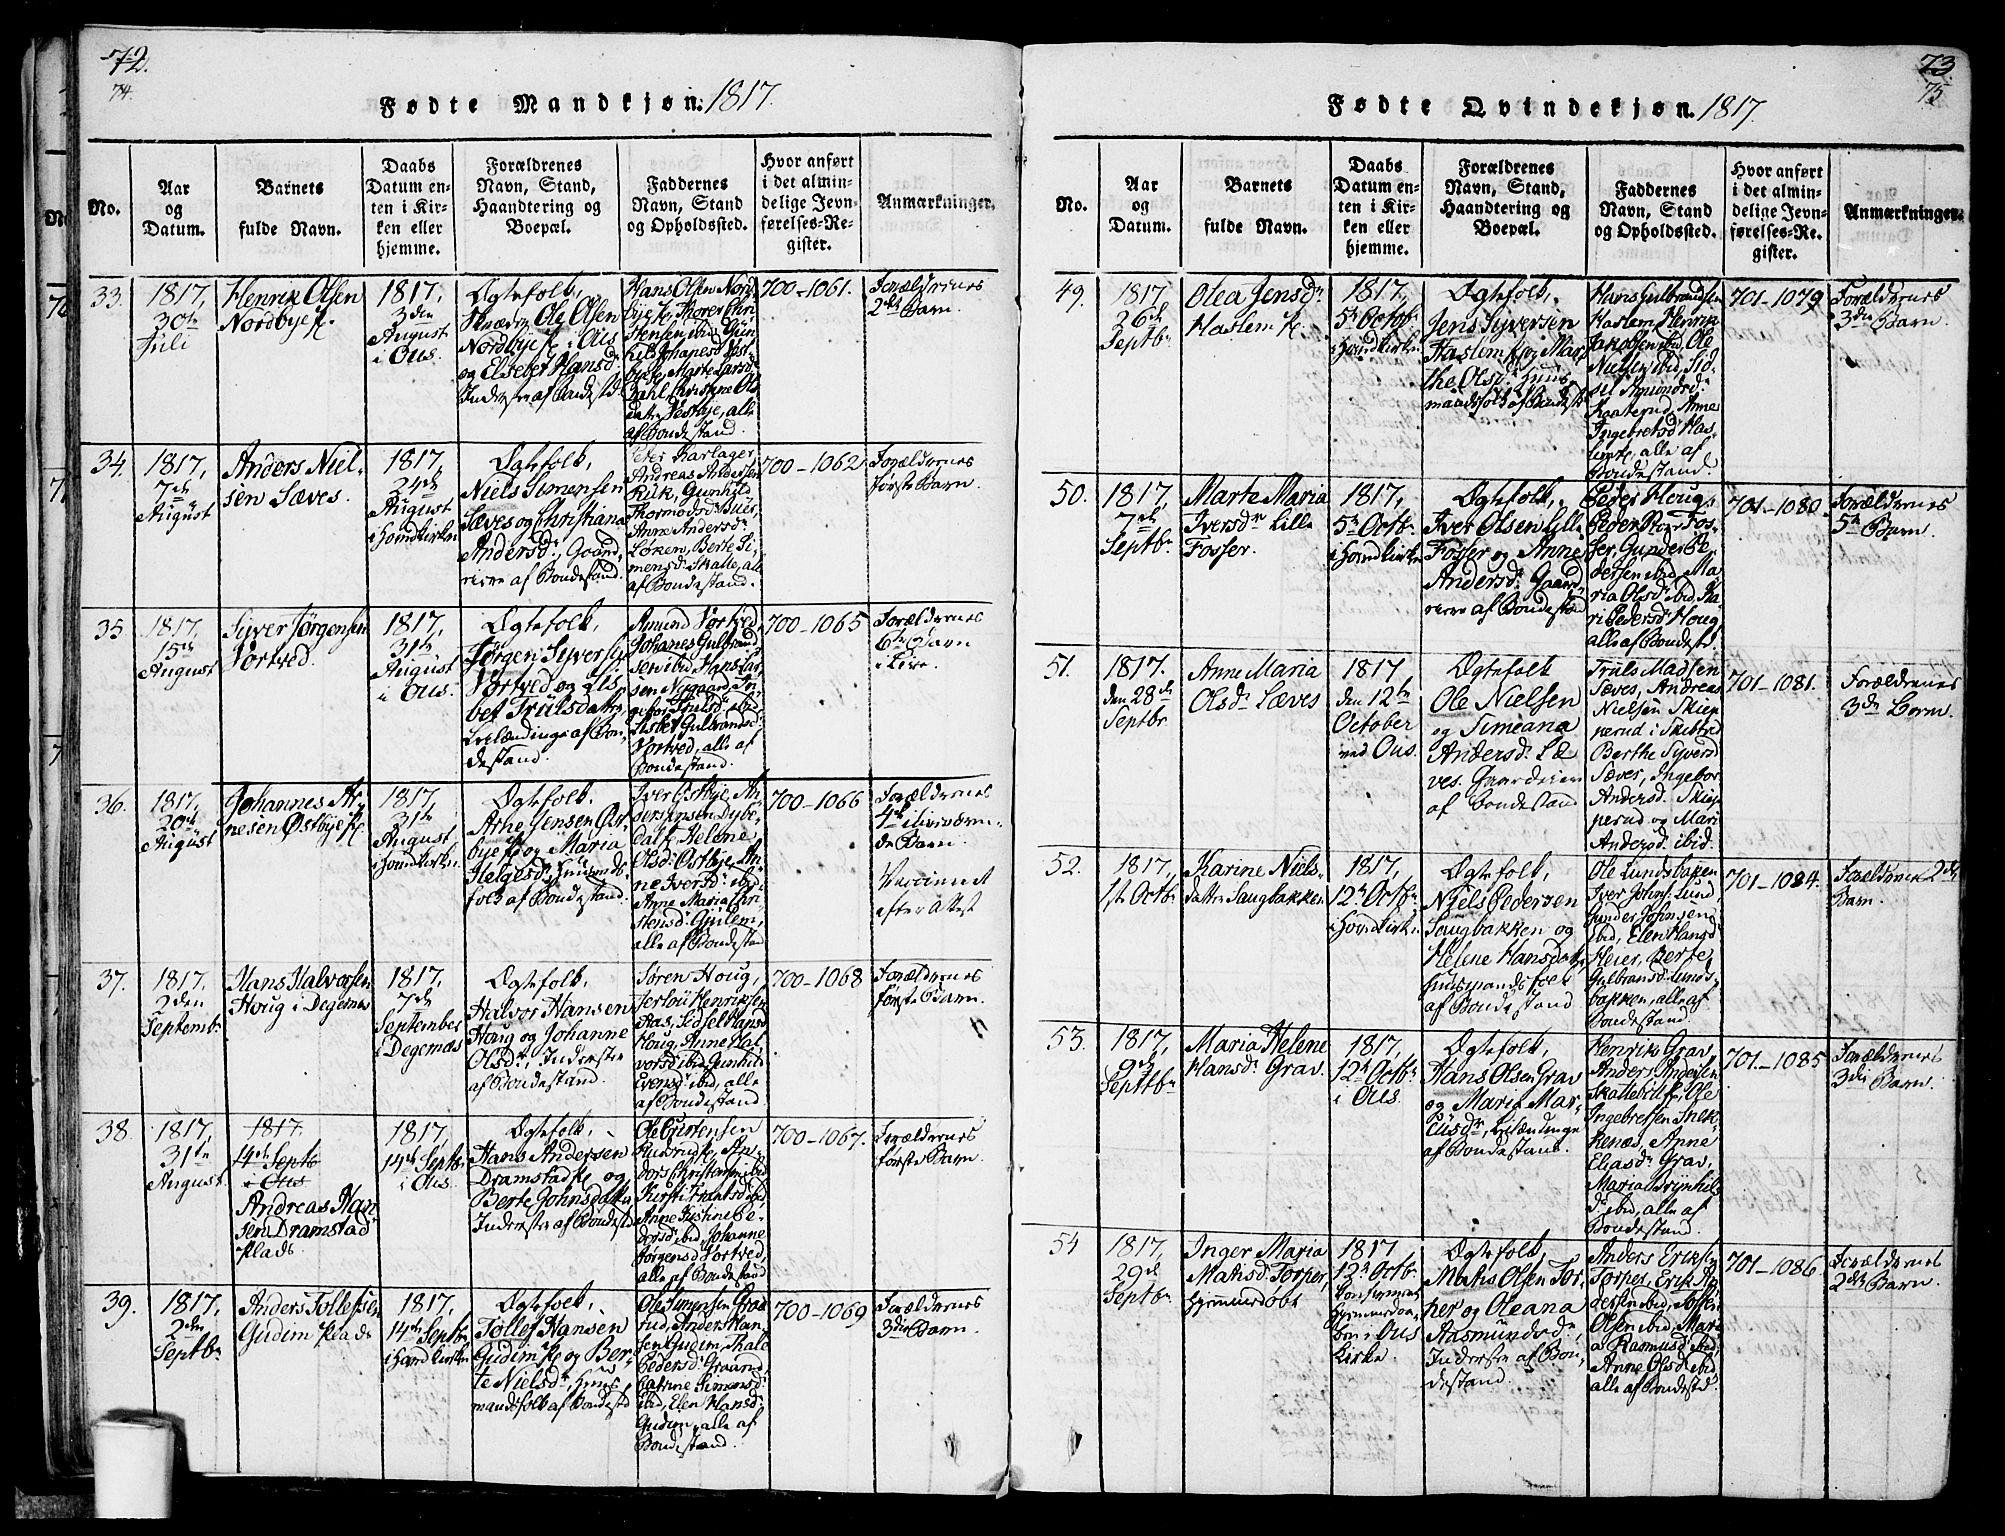 72.
74.
Fødte Mandkjøn. 1817.
No.
Aar
og
Datum.
Barnets
fulde Navn.
Daabs
Datum en-
ten i Kir-
ken eller
hjemme.
Forældrenes
Navn, Stand,
Haandtering og
Boepæl.
Faddernes
Navn, Stand
og Opholdssted.
Hvor anført
i det almin-
delige Jevn-
førelses-Re-
gister.
Anmærkninger.
33.
1817,
30te
Juli
Henrik Olsen
Nordbye
1817,
3den
August
i Ous.
Ægtefolk,
Ole Olsen
Nordbye i Ous
og Elsebet Hansd
Inderster af Bondestd.
Hans Olsen Nord
bye
Dahl, Christine Ols
datr Vestbye, alle
af Bondestand.
700-1061.
Forældrenes
2det Barn.
34.
1817,
7de
August
Anders Niel-
sen Sæves.
1817,
24de
August
i Hovindkirken
Ægtefolk,
Niels Simensen
Sæves og Christiana
Andersd., Gaard-
rere af Bondestand.
Peder Karlager,
Andreas Andersen
Kiik, Gunhild
Thormodsd. Buer,
Anne Andersd.
Løken, Berte Si-
mensd. Skalle, alle
af Bondestand.
700-1062
Forældrenes
første Barn.
35
1817,
15de
August
Syver Jørgensen
Vortved.
1817,
31te
August
i Ous.
Ægtefolk,
Jørgen Syvers.
Vortved og Elis
bet Trulsdatr,
af Bon-
destand.
Amund Vortved,
Johanes Gulbrand
sen ibid, Hans Lar
sen Nygaard, In-
gebor Trulsd. ibid,
Lisbet Gulbransd.
Vortved, alle af
Bondestand.
700-1065
Forældrenes
6te Barn
i Live.
36.
1817,
20de
August
Johannes Ar-
nesen Østbye
1817,
31te
August
i Hovindkirken.
Ægtefolk,
Arne Jensen Øst
bye og Maria
Helgesd., Huusmands
folk af Bondestand.
Iver Østbye, An
ders Jensen Dybe
dal, Helene
Olsd. Østbye, An
ne Iversd. ibid,
Anne Maria Chri
stensd. Gullem,
alle af Bondestand
700-1066
Forældrenes
4de
de Barn.
Vaccineret
efter Attest
37.
1817.
2den
Septembr
Hans Halvorsen
Houg i Degernes
1817.
7de
September
i Degernæs
Ægtefolk,
Halvor Hansen
Houg og Johanne
Olsd., Inderster
af Bondestand.
Søren Houg,
Henriksen
Aas, Sidsel Hansd
Houg, Anne Hal
vorsd ibid, Gunhild
Evensd. ibid, alle
af Bondestand
700-1068
Forældrenes
første Barn.
38.
1817,
31te
August.
1817.
14de Septb
i Ous
Andreas Han
sen Dramstad
plads.
1817,
14de Septbr
i Ous.
Ægtefolk,
Hans Andersen
Dramstad og
Berte Johnsdatter
Inderster af Bondestd
Ole Christensen
An-
ders Christensen ibid
Anne Kistine Pe-
dersd. ibid, Johanne
Jørgensd Vortved,
alle af Bondestand
700-1067.
Forældrenes
første Barn.
39.
1817.
2den
Septbr
Anders Tollefsen
Gudim plads
1817,
14de Septbr
i Hovindkirken
Ægtefolk,
Tollef Hansen
Gudim og Ber-
te Nielsdr, Huus-
mandsfolk af Bondestd
Ole Simensen Graa
rud, Anders Han
sen Gudim, Thale
Pedersd. Graarud
Catrine Simensd.
ibid, Elen Hansd.
Gudim, alle af
Bondestand.
700-1069
Forældrenes
3die Barn.
73.
75
Fødte Qvindekjøn. 1817.
No.
Aar
og
Datum.
Barnets
fulde Navn.
Daabs
Datum en-
ten i Kir-
ken eller
hjemme.
Forældrenes
Navn, Stand,
Haandtering og
Boepæl.
Faddernes
Navn, Stand
og Opholdssted.
Hvor anført
i det almin-
delige Jevn-
førelses-Re-
gister.
Anmærkninger.
49.
1817
26de
Septbr
Olea Jensdr
Haslem
1817,
5te Octbr
i Hovindkirken
Ægtefolk,
Jens Syversen
Haslem og Mar-
the Olsd., Huus-
mandsfolk af Bondestd
Hans Gulbrandsen
Haslem, Henrik
Jakobsen ibid, Ole
Nielsen ibid, Sid-
sel Amundsd.
Kaaterud, Anne
Ingebretsd Has-
lem, alle af
Bondestand
701-1079
Forældrenes
3die Barn.
50.
1817,
7de
Septbr
Marte Maria
Iversdr Lille
Fosser.
1817,
5te Octbr
i Hovindkirken
Ægtefolk,
Iver Olsen Lille
Fosser og Anne
Andersd. Gaard-
rere af Bondestand
Peder Houg,
Peder Fos-
ser, Gunder Pe-
dersen ibid, Ma-
ria Olsd ibid, Ka-
ri Pedersd Houg,
alle af Bondestd.
701-1080
Forældrenes
5te Barn.
51.
1817.
den 28de
Septbr
Anne Maria
Olsdr Sæves
1817
den 12te
October
ved Ous.
Ægtefolk
Ole Nielsen
og Simeana
Andersd. Sæ
ves. Gaardeiere
af Bondestand
Truls Madsen
Sæves, Andreas
Nielsen Skiep
perud i Skibtved
Berthe Syversd
Sæves, Ingebor
Andersd. Skiep
perud og Mari
Andersd. ibid.
701-1081.
Forældrenes
3die Barn.
52.
1817,
1st Octbr
Karine Niels-
datter Saugbakken
1817,
12te Octbr
i Hovindkirken
Ægtefolk,
Niels Pedersen
Saugbakken og
Helene Hansdatr
Huusmandsfolk
af Bondestand
Ole Lundsbakken
Iver Johns. Lund,
Gunder Johnsen
ibid, Elen Hansd.
Heier, Berte
Gulbransd. Lunds-
bakken, alle af
Bondestand.
701-1084.
Forældrenes 2det
Barn.
53.
1817.
9de
Septbr
Maria Helene
Hansdr Grav.
1817,
12te Octbr
i Ous.
Ægtefolk,
Hans Olsen Grav
og Maria Mar-
cusdr,
af Bondestand.
Henrik Grav,
Anders Andersen
Skattebøl, Ole
Ingebretsen Snek-
kenæs, Anne
Eliasdr Grav,
Maria Brynhils
dr. ibid, alle af
Bondestand.
701-1085
Forældrenes
3die Barn.
54
1817,
29de
Septbr
Inger Maria
Mathisd Torper,
Hjemmedøbt
1817
12te Octbr
Confirmeret
Hjemmedaa-
ben i Ous
Kirke.
Ægtefolk,
Mathis Olsen Tor-
per og Oleana
Aasmundsd.,
Inderster af Bon-
destand.
Anders Eriksen
Torper, Erik An
dersen ibid,
Olsen ibid, Mari
a Rasmusd. ibid,
Anne Olsd. ibid
alle af Bondestd.
701-1086
Forældrenes
2det Barn.